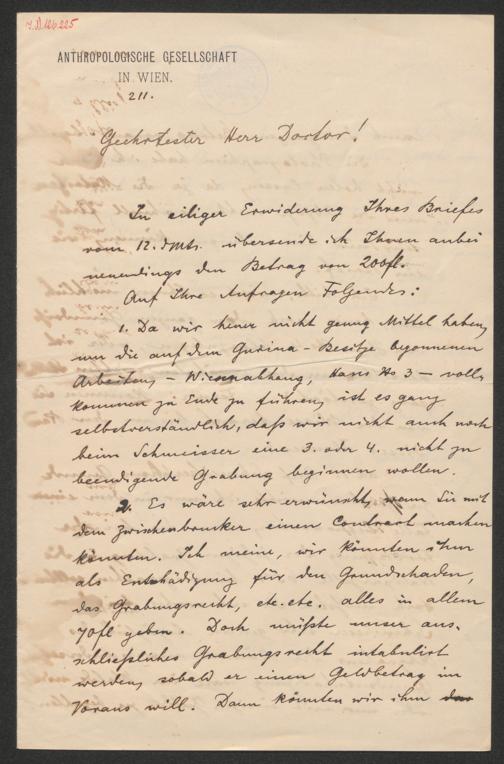 J.N. 126.225
ANTHROPOLOGISCHE GESELLSCHAFT
IN WIEN.
211.
Geehrtester Herr Doctor!
In eiliger Erwiderung Ihres Briefes
vom 12. d Mts. übersende ich Ihnen anbei
neuerdings den Betrag von 200fl.
Auf Ihre Anfragen Folgendes:
1. Da wir heuer nicht genug Mittel haben,
um die auf dem Gurina-Besitze begonnenen
Arbeiten, – Wiesenabhang, Haus No 3 – voll-
kommen zu Ende zu führen, ist es ganz
selbstverständlich, daß wir nicht auch noch
beim Schmeisser eine 3. oder 4. nicht zu
beendigende Grabung beginnen wollen.
2. Es wäre sehr erwünscht, wenn Sie mit
dem Zwischenbrunker einen Contract machen
könnten. Ich meine, wir könnten ihm
als Entschädigung für den Grundschaden,
das Grabungsrecht, etc. etc. alles in allem
70fl geben. Doch müßte unser aus-
schließliches Grabungsrecht intabulirt
werden, sobald er einen Geldbetrag im
Voraus will. Dann könnten wir ihm